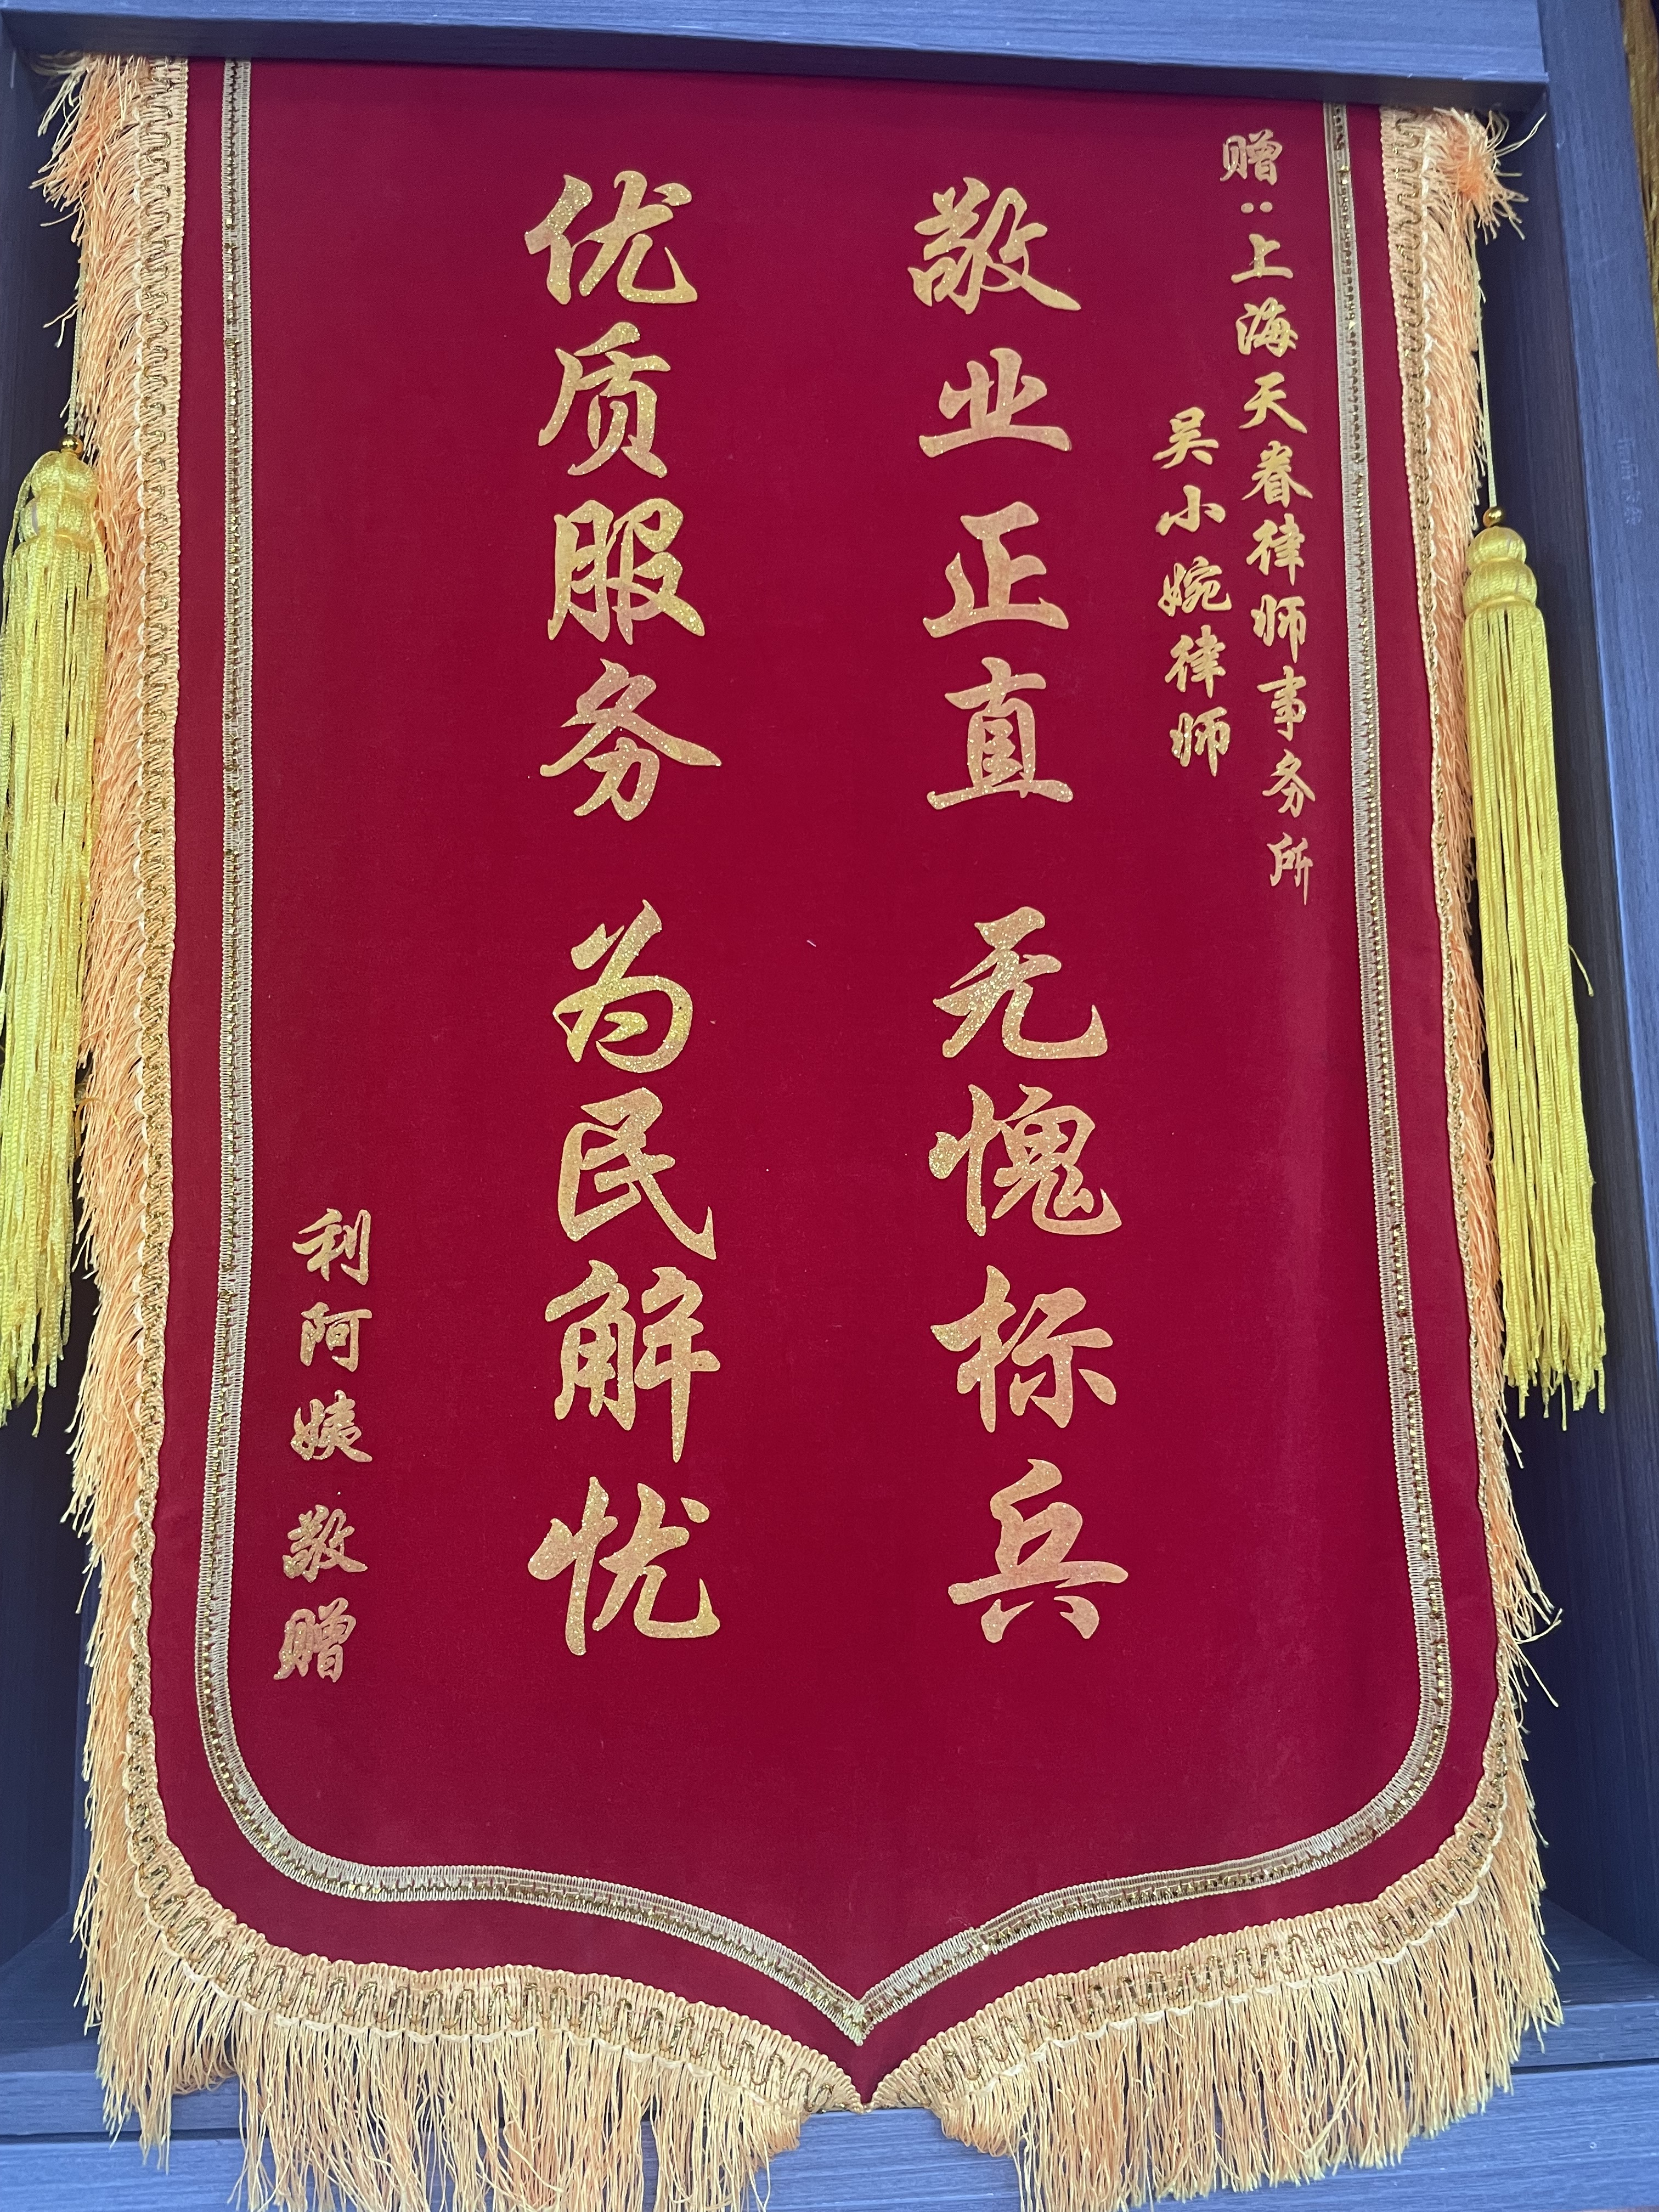 赠：上海天眷律师事务所
吴小婉律师
敬业正直 无愧标兵
优质服务 为民解忧
利阿姨 敬赠